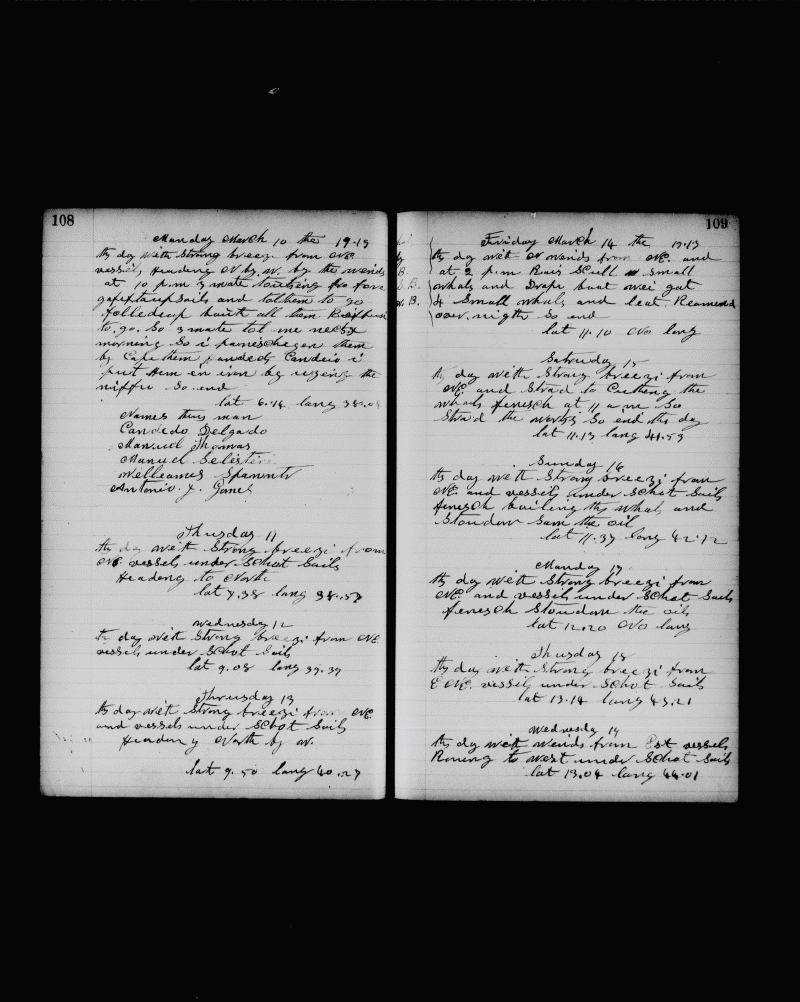 108
Manday March 10 the 19.13
ths day with strong breezi from NE.
vessels heading N by. w. by the wends
at 10 p.m 3 mate touching fro fore
gafftaupsails and tolthem to go
to.go. So 3 mate tol me nechx
morning So i them
by Cape them Candeio i
put them en iron by the
So.end
lat 6.14 lang 38.
Names this man
Candedo Delgado
Manuel Thomas
Manuel Selister
Welleams
Antonio. J. Gomes
Thusday 11
ths day wett Strong breezi from
NE vessels under Schot Sails
Heading to North
lat 7.38 lang 38.53
Wednesday 12
ths day with Strong breezi from NE
vessels under Schot Sails
lat 9.08 lang 39.39
Thrusday 13
ths day wett Strong breezi from NE.
and vessels under Schot Sails
Heading North by w.
lat 9.50 lang 40.27
109
Friday March 14 the 19.13
ths day wet N wends from NE. and
at 2 p.m Rais Scull Small
whals and Drop boat wei gat
4 Small whals and leat.
over.nigth So end
lat 11.10 No long
Satruday 15
ths day with Strong breezi from
NE and Stra'd to Cuthing the
whals fenesch at 11 a.m So
Stra'd the So end ths day
lat 11.13 lang 41.53
Sunday 16
ths day wett Strong breezi from
NE. and vessels under Schot Sails
fenesch builing ths whals and
Stoudon Sam the oil
lat 11.39 long 42.12
Manday 17
ths day wett Strong breezi from
NE. and vessels under Schot Sails
fenesch Stoudon the oils
lat 12.20 No lang
Thusday 18
ths day with Strong breezi from
E NE. vessels under Schot Sails
lat 13.14 lang 43.21
Wednesday 19
ths day wett wends from Est vessels
Roning to west under Schot Sails
lat 13.04 lang 44.01